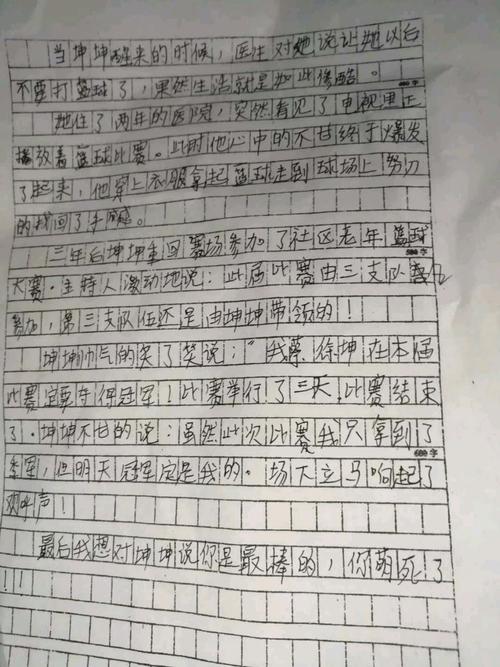 当坤坤醒来的时候，医生对她说让她以后
不要打篮球了，果然生活就是如此惨酷。
她住了两年的医院，突然看见了电视里正
播放着篮球比赛。此时他心中的不甘终于爆发
了起来，他穿上衣服拿起篮球走到球场上努力
的找回了手感。
三年后坤坤重回赛场参加了社区老年篮球
大赛．主持人激动地说：此届比赛由三支队伍
参加，第三支队伍还是由坤坤带领的！
坤坤帅气的笑了笑说："我蔡徐坤在本届
比赛定要夺得冠军！此赛举行了三天．比赛结束
了．坤坤不甘的说：虽然此次比赛我只拿到了
季军，但明天冠军定是我的．场下立马响起了
欢呼声！
最后我想对坤坤说你是最棒的，你萌死了
！！